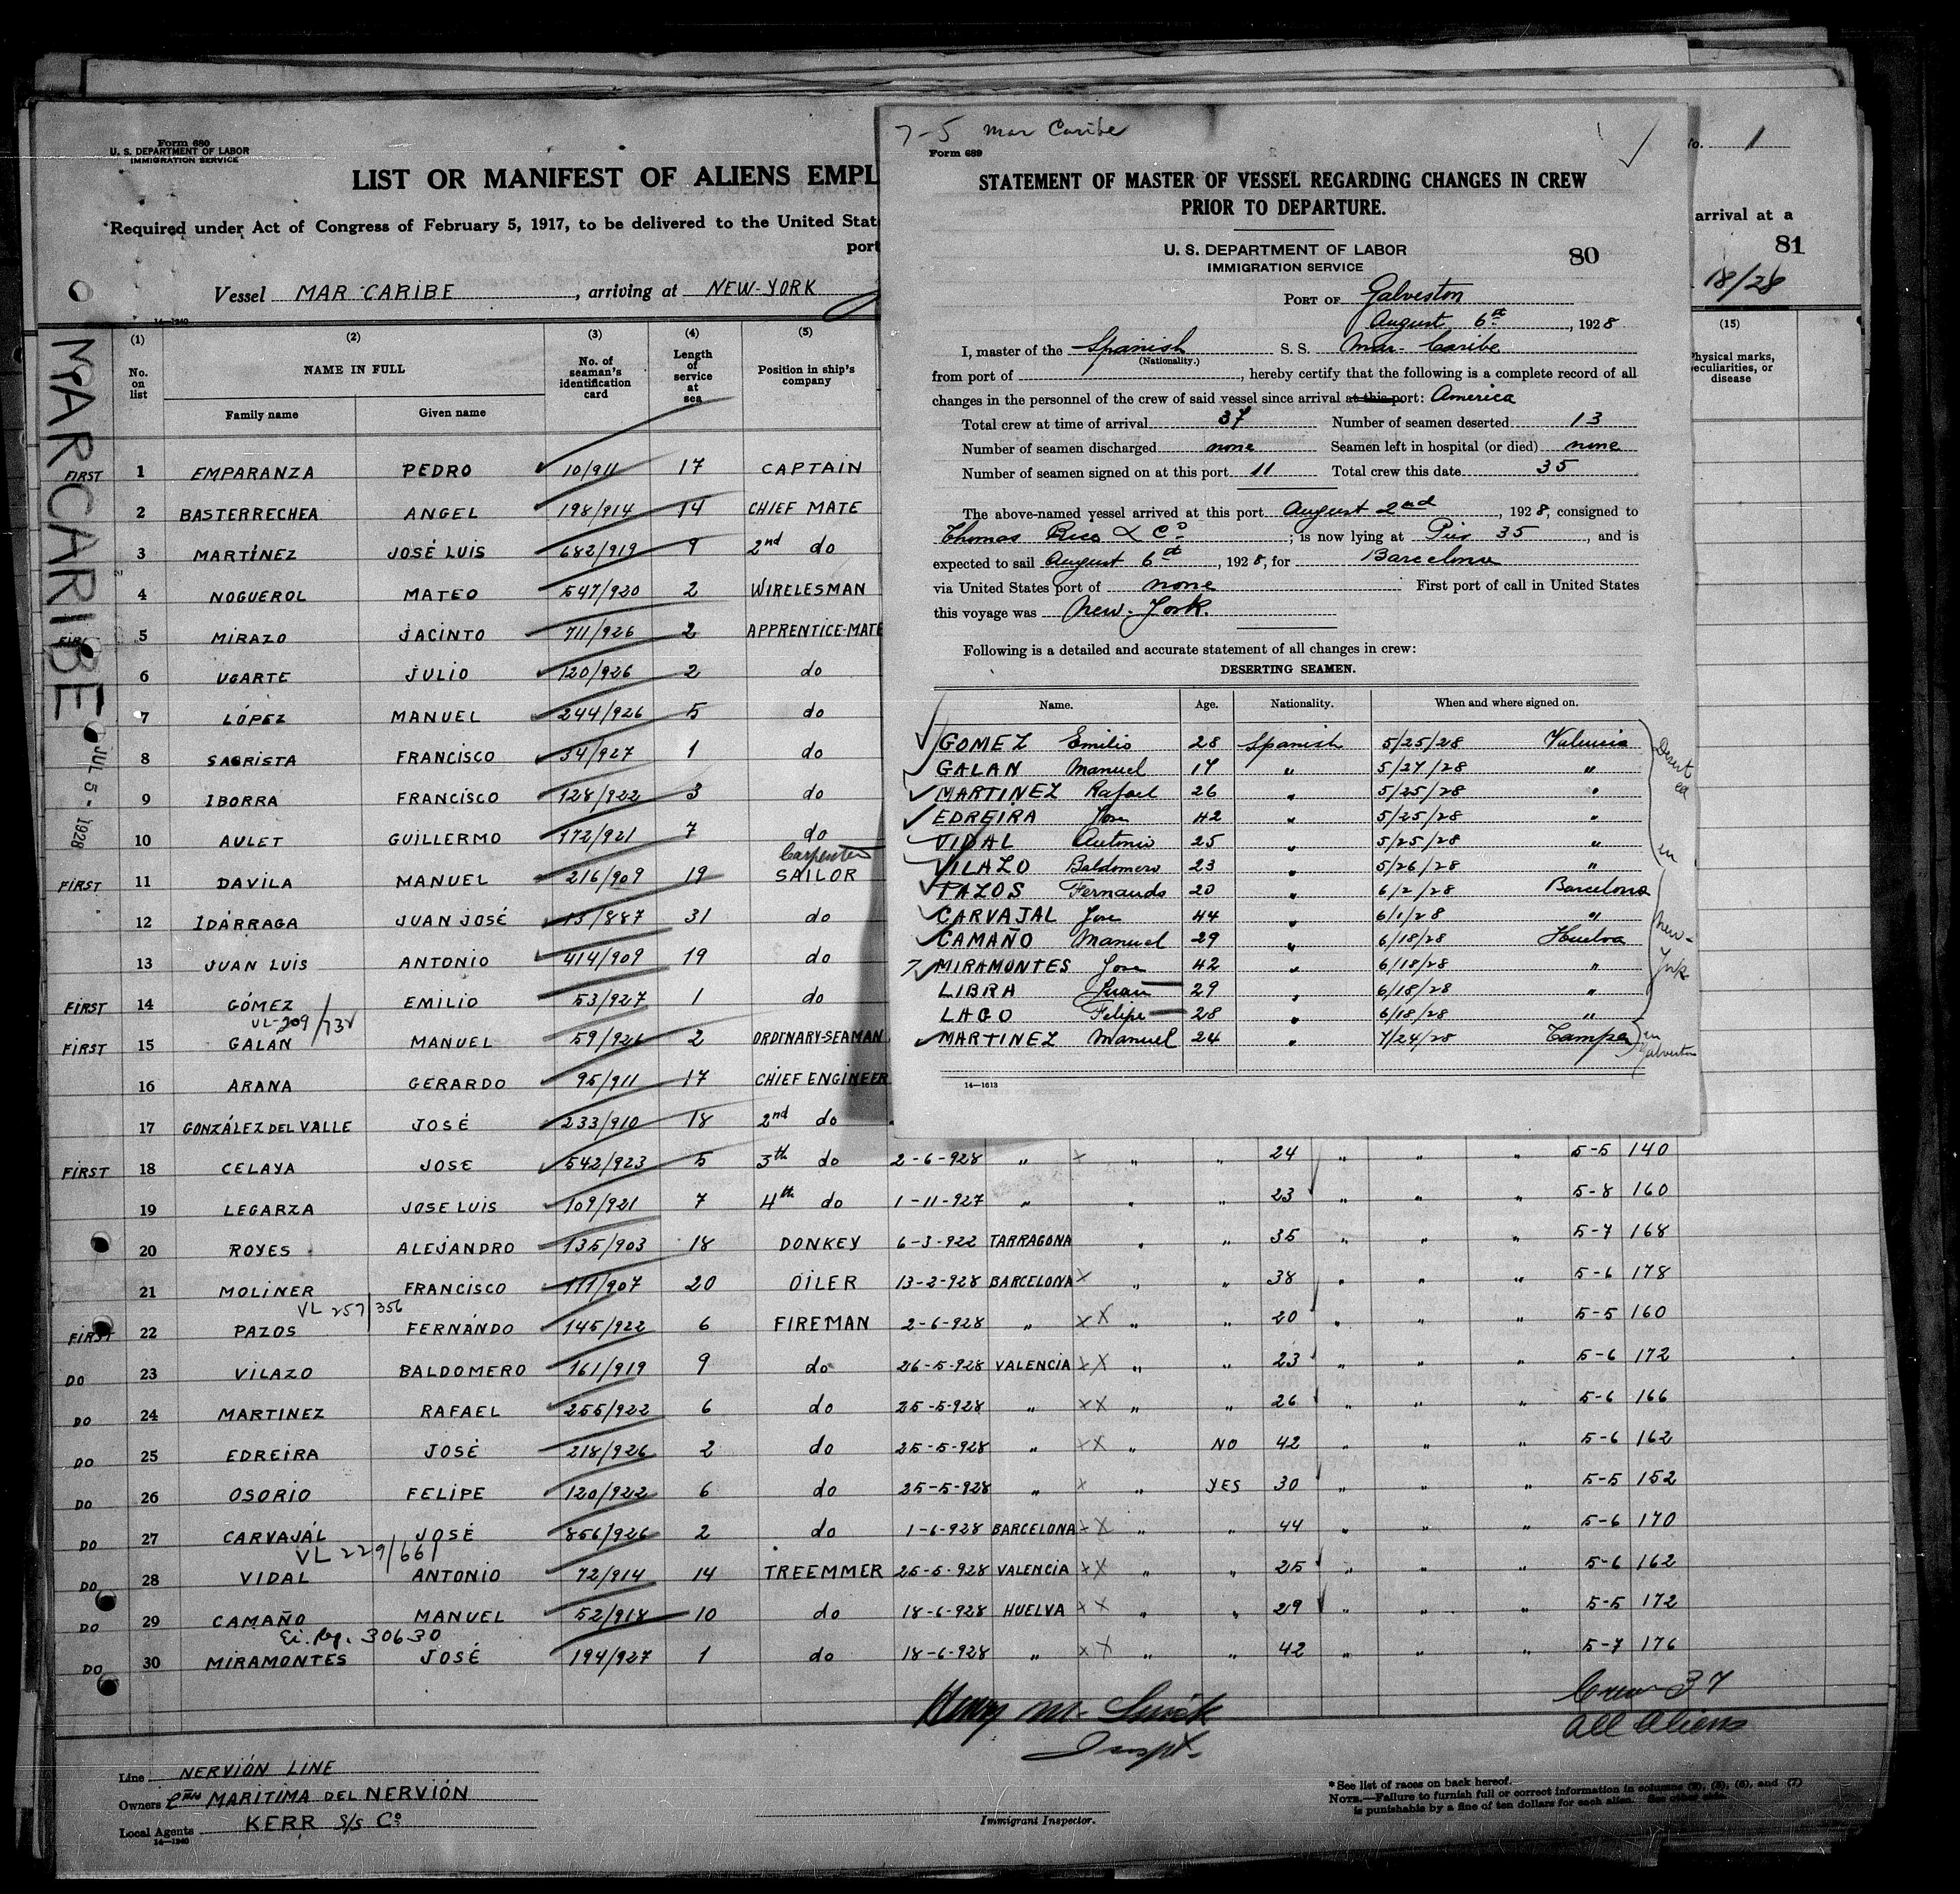 Form 680
U. S. DEPARTMENT OF LABOR
IMMIGRATION SERVICE
LIST OR MANIFEST OF ALIENS EMPL
Required under Act of Congress of February 5, 1917, to be delivered to the United Stat
port
Vessel MAR CARIBE, arriving at NEW-YORK
14-1240
o. 1
arrival at a
81
18/28
MAR CARIBE
JUL 5 - 1928
(1) (2) (3) (4) (5) (15)
No. on list NAME IN FULL No. of seaman's identification card Length of service at sea Position in ship's company Physical marks, peculiarities, or disease
Family name Given name
FIRST 1 EMPARANZA PEDRO 10/911 17 CAPTAIN
2 BASTERRECHEA ANGEL 198/914 14 CHIEF MATE
3 MARTÍNEZ JOSÉ LUIS 682/919 9 2nd do
4 NOGUEROL MATEO 547/920 2 WIRELESMAN
5 MIRAZO JACINTO 711/926 2 APPRENTICE-MATE
6 UGARTE JULIO 120/926 2 do
7 LÓPEZ MANUEL 244/926 5 do
8 SAGRISTA FRANCISCO 34/927 1 do
9 IBORRA FRANCISCO 128/922 3 do
10 AULET GUILLERMO 172/921 7 do
Carpenter
FIRST 11 DAVILA MANUEL 216/909 19 SAILOR
12 IDÁRRAGA JUAN JOSÉ 13/887 31 do
13 JUAN LUIS ANTONIO 414/909 19 do
FIRST 14 GÓMEZ EMILIO 53/927 1 do
VL-209/732
FIRST 15 GALAN MANUEL 59/926 2 ORDINARY-SEAMAN
16 ARANA GERARDO 95/911 17 CHIEF ENGINEER
17 GONZÁLEZ DEL VALLE JOSÉ 233/910 18 2nd do
FIRST 18 CELAYA JOSE 542/923 5 3th do 2-6-928 " x " " 24 " " " 5-5 140
19 LEGARZA JOSE LUIS 109/921 7 4th do 1-11-927 " " " 23 " " " 5-8 160
20 ROYES ALEJANDRO 135/903 18 DONKEY 6-3-922 TARRAGONA " " 35 " " " 5-7 168
21 MOLINER FRANCISCO 111/907 20 OILER 13-2-928 BARCELONA x " " 38 " " " 5-6 178
VL 257/356
FIRST 22 PAZOS FERNÁNDO 145/922 6 FIREMAN 2-6-928 " xX " " 20 " " " 5-5 160
DO 23 VILAZO BALDOMERO 161/919 9 do 26-5-928 VALENCIA xX " " 23 " " " 5-6 172
DO 24 MARTINEZ RAFAEL 255/922 6 do 25-5-928 " xX " " 26 " " " 5-6 166
DO 25 EDREIRA JOSÉ 218/926 2 do 25-5-928 " xX " NO 42 " " " 5-6 162
DO 26 OSORIO FELIPE 120/922 6 do 25-5-928 " x " YES 30 " " " 5-5 152
DO 27 CARVAJÁL JOSÉ 856/926 2 do 1-6-928 BARCELONA xX " " 44 " " " 5-6 170
VL 229/661
DO 28 VIDAL ANTONIO 72/914 14 TREEMMER 25-5-928 VALENCIA xX " " 25 " " " 5-6 162
DO 29 CAMAÑO MANUEL 52/918 10 do 18-6-928 HUELVA xX " " 29 " " " 5-5 172
30630
DO 30 MIRAMONTES JOSÉ 194/927 1 do 18-6-928 " xX " " 42 " " " 5-7 176
Henry M.
Inspt.
Crew 37
All Aliens
Line NERVIÓN LINE
Owners Cña MARITIMA DEL NERVIÓN
Local Agents KERR S/S Co
14-1240
Immigrant Inspector.
* See list of races on back hereof.
NOTE.—Failure to furnish full or correct information in columns (2), (5), (6), and (7)
is punishable by a fine of ten dollars for each alien. See other side.
7-5 Mar Caribe
Form 689
STATEMENT OF MASTER OF VESSEL REGARDING CHANGES IN CREW
PRIOR TO DEPARTURE.
U. S. DEPARTMENT OF LABOR
IMMIGRATION SERVICE
80
PORT OF Galveston
August 6th, 1928
I, master of the Spanish S. S. Mar-Caribe
(Nationality.)
from port of , hereby certify that the following is a complete record of all
changes in the personnel of the crew of said vessel since arrival at this port: America
Total crew at time of arrival 37 Number of seamen deserted 13
Number of seamen discharged none Seamen left in hospital (or died) none
Number of seamen signed on at this port 11 Total crew this date 35
The above-named vessel arrived at this port August 2nd, 1928, consigned to
Thomas Rice & Co; is now lying at Pier 35, and is
expected to sail August 6th, 1928, for Barcelona
via United States port of none First port of call in United States
this voyage was New-York.
Following is a detailed and accurate statement of all changes in crew:
DESERTING SEAMEN.
Name. Age. Nationality. When and where signed on.
GOMEZ Emilio 28 Spanish 5/25/28 Valencia
GALAN Manuel 17 " 5/27/28 "
MARTINEZ Rafael 26 " 5/25/28 "
EDREIRA Jose 42 " 5/25/28 "
VIDAL Antonio 25 " 5/25/28 "
VILAZO Baldomero 23 " 5/26/28 "
PAZOS Fernando 20 " 6/2/28 Barcelona
CARVAJAL Jose 44 " 6/1/28 "
CAMAÑO Manuel 29 " 6/18/28 Huelva
MIRAMONTES Jose 42 " 6/18/28 "
LIBRA Juan 29 " 6/18/28 "
LAGO Felipe 28 " 6/18/28 "
MARTINEZ Manuel 24 " 7/24/28 Tampa
Deserted en New-York
en Galveston
14-1613